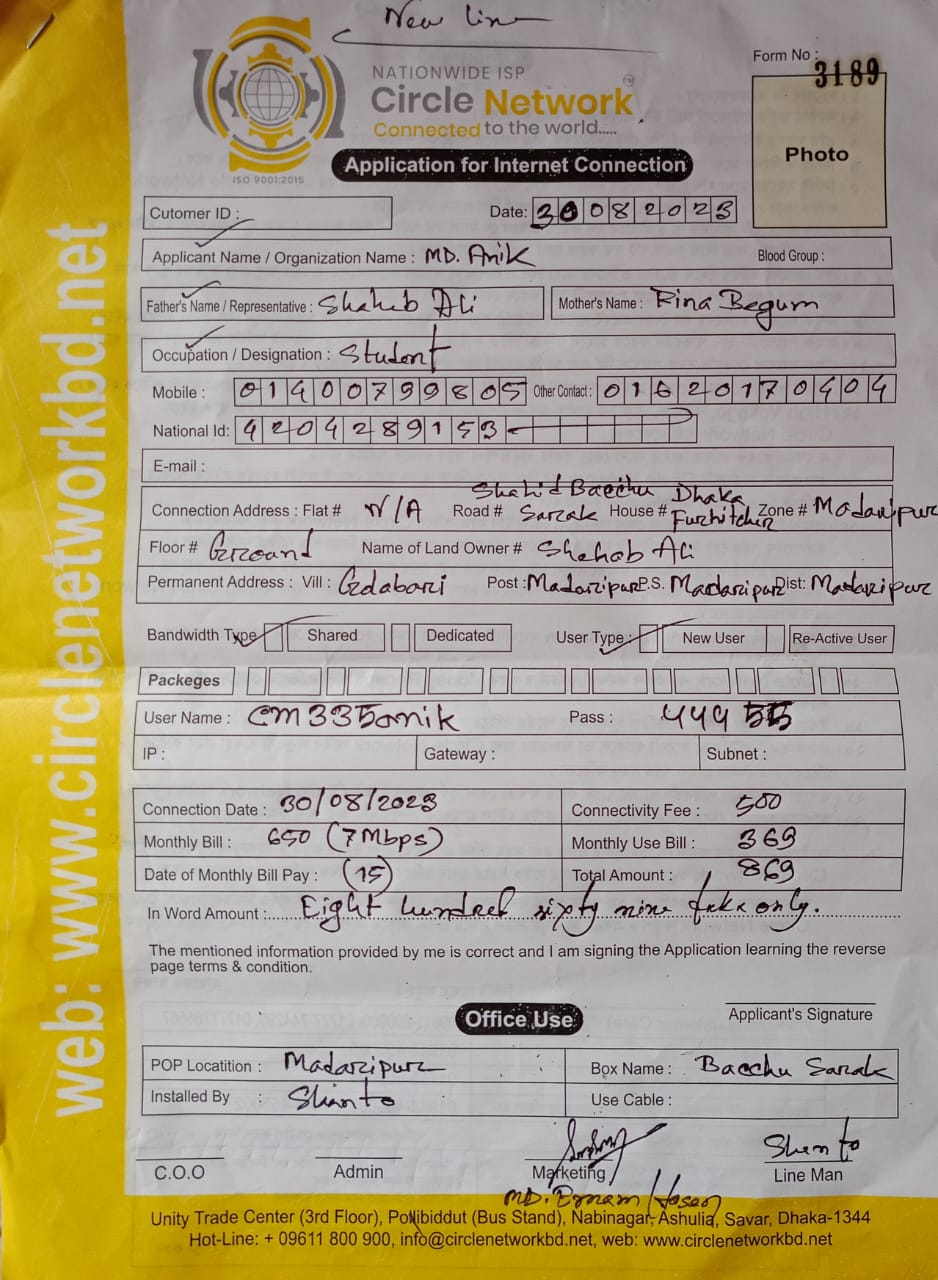 New Line
Form No : 3189
NATIONWIDE ISP
Circle Network
Connected to the world.....
ISO 9001:2015
Application for Internet Connection
Photo
Cutomer ID :
Date: 30082023
Applicant Name / Organization Name : MD. Anik Blood Group :
Father's Name / Representative : Shahib Ali Mother's Name : Rina Begum
Occupation / Designation : Student
Mobile : 01400799805 Other Contact : 01620170404
National Id: 4204289153
E-mail :
Connection Address : Flat # N/A Road # Shahid Bacchu Sarak House # Dhaka Zone # Madaripur
Floor # Ground Name of Land Owner # Shehab Ali
Permanent Address : Vill : Post : Madaripur P.S. Madaripur Dist: Madaripur
Bandwidth Type Shared Dedicated User Type : New User Re-Active User
Packeges
User Name : cm335anik Pass : 444555
IP : Gateway : Subnet :
Connection Date : 30/08/2023 Connectivity Fee : 500
Monthly Bill : 650 (7Mbps) Monthly Use Bill : 369
Date of Monthly Bill Pay : (15) Total Amount : 869
In Word Amount : Eight hundred sixty nine taka only.
The mentioned information provided by me is correct and I am signing the Application learning the reverse
page terms & condition.
Applicant's Signature
Office Use
POP Locatition : Madaripur Box Name : Bacchu Sarak
Installed By : Shanto Use Cable :
Shanto
C.O.O Admin Marketing Line Man
MD. Emam Hosen
Unity Trade Center (3rd Floor), Pollibiddut (Bus Stand), Nabinagar, Ashulia, Savar, Dhaka-1344
Hot-Line: + 09611 800 900, info@circlenetworkbd.net, web: www.circlenetworkbd.net
web: www.circlenetworkbd.net